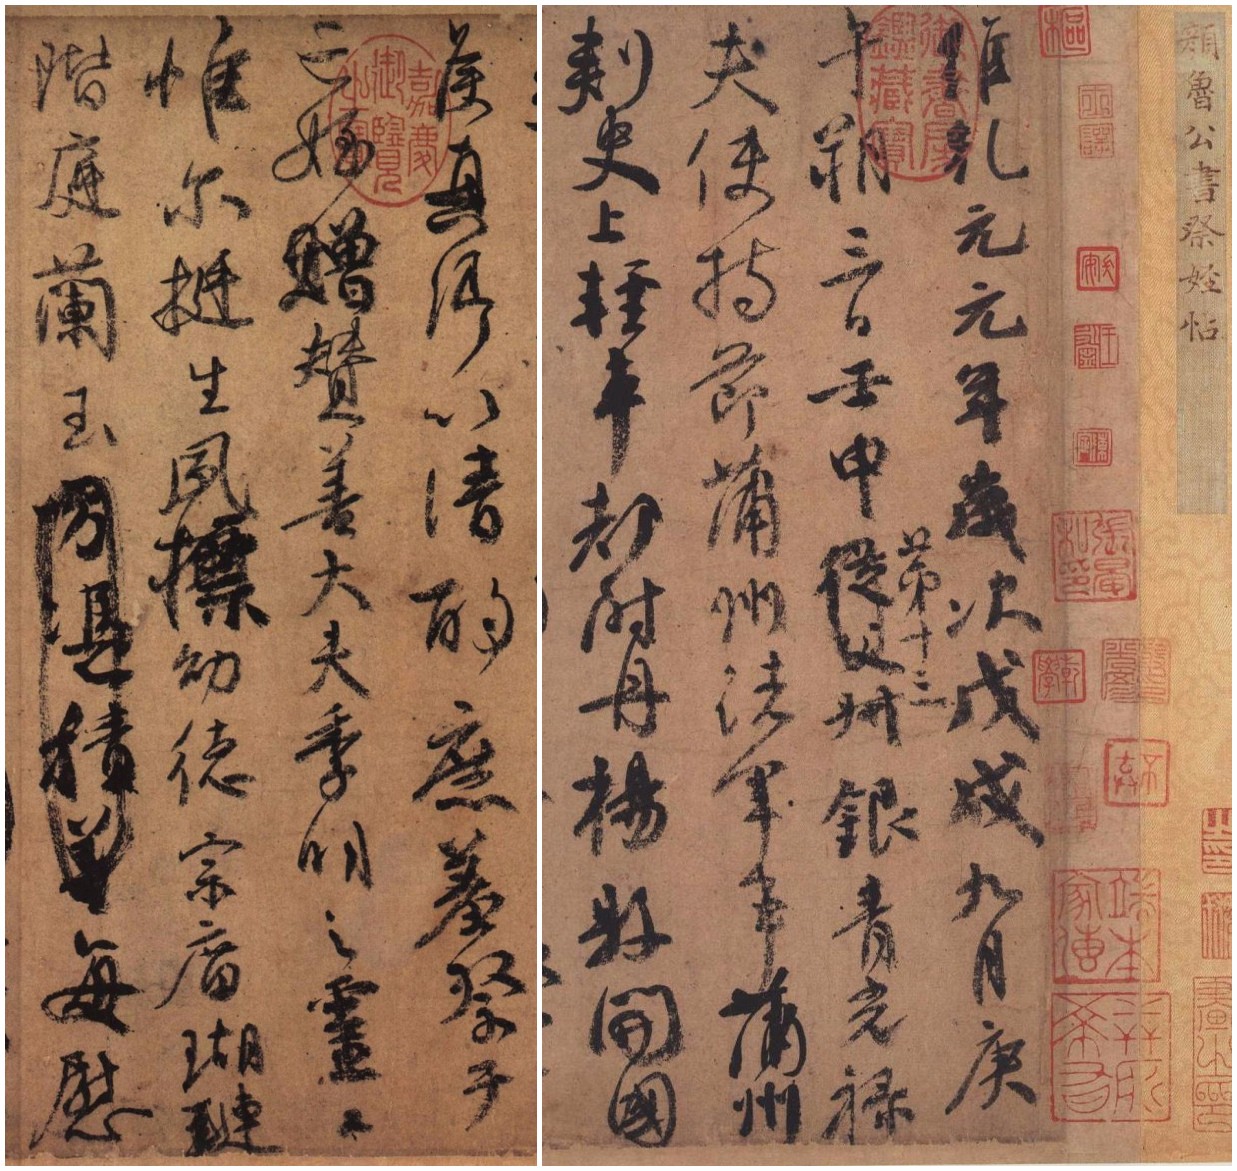 顏魯公書祭姪帖
維乾元元年歲次戊戌九月庚
午朔三日壬申第十三從父叔銀青光祿
夫使持節蒲州諸軍事蒲州
刺史上輕車都尉丹楊縣開國
侯真卿以清酌庶羞祭于
亡姪贈贊善大夫季明之靈曰
惟爾挺生夙標幼德宗廟瑚璉
階庭蘭玉方憑積善每慰
御書房鑑藏寶
嘉慶御覽之寶